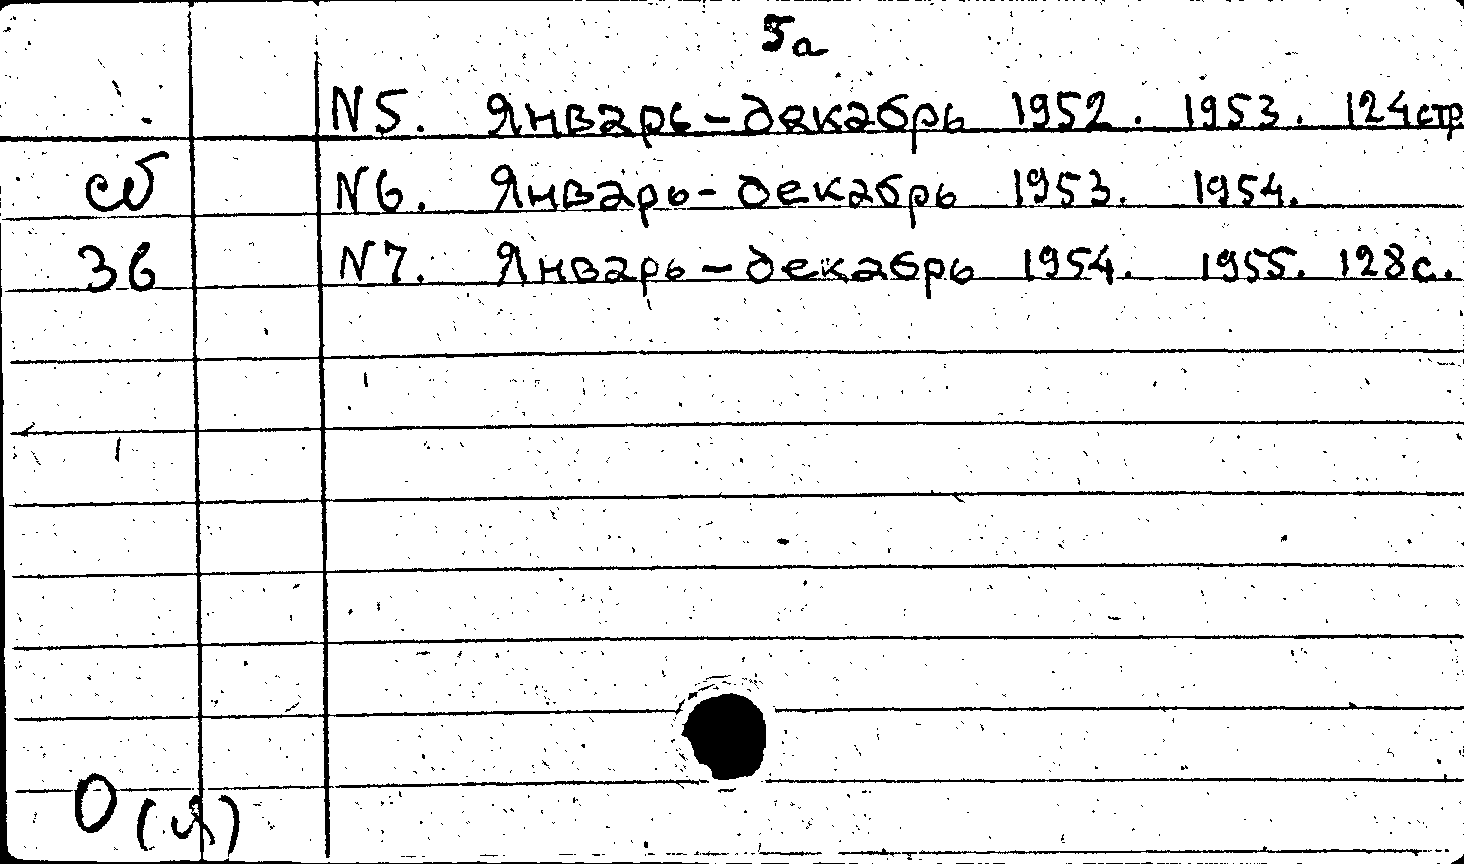 5а
N5. Январь-декабрь 1952. 1953. 124стр
сб N6. Январь-декабрь 1953. 1954.
36 N7. Январь-декабрь 1954. 1955. 128с.
О (я)